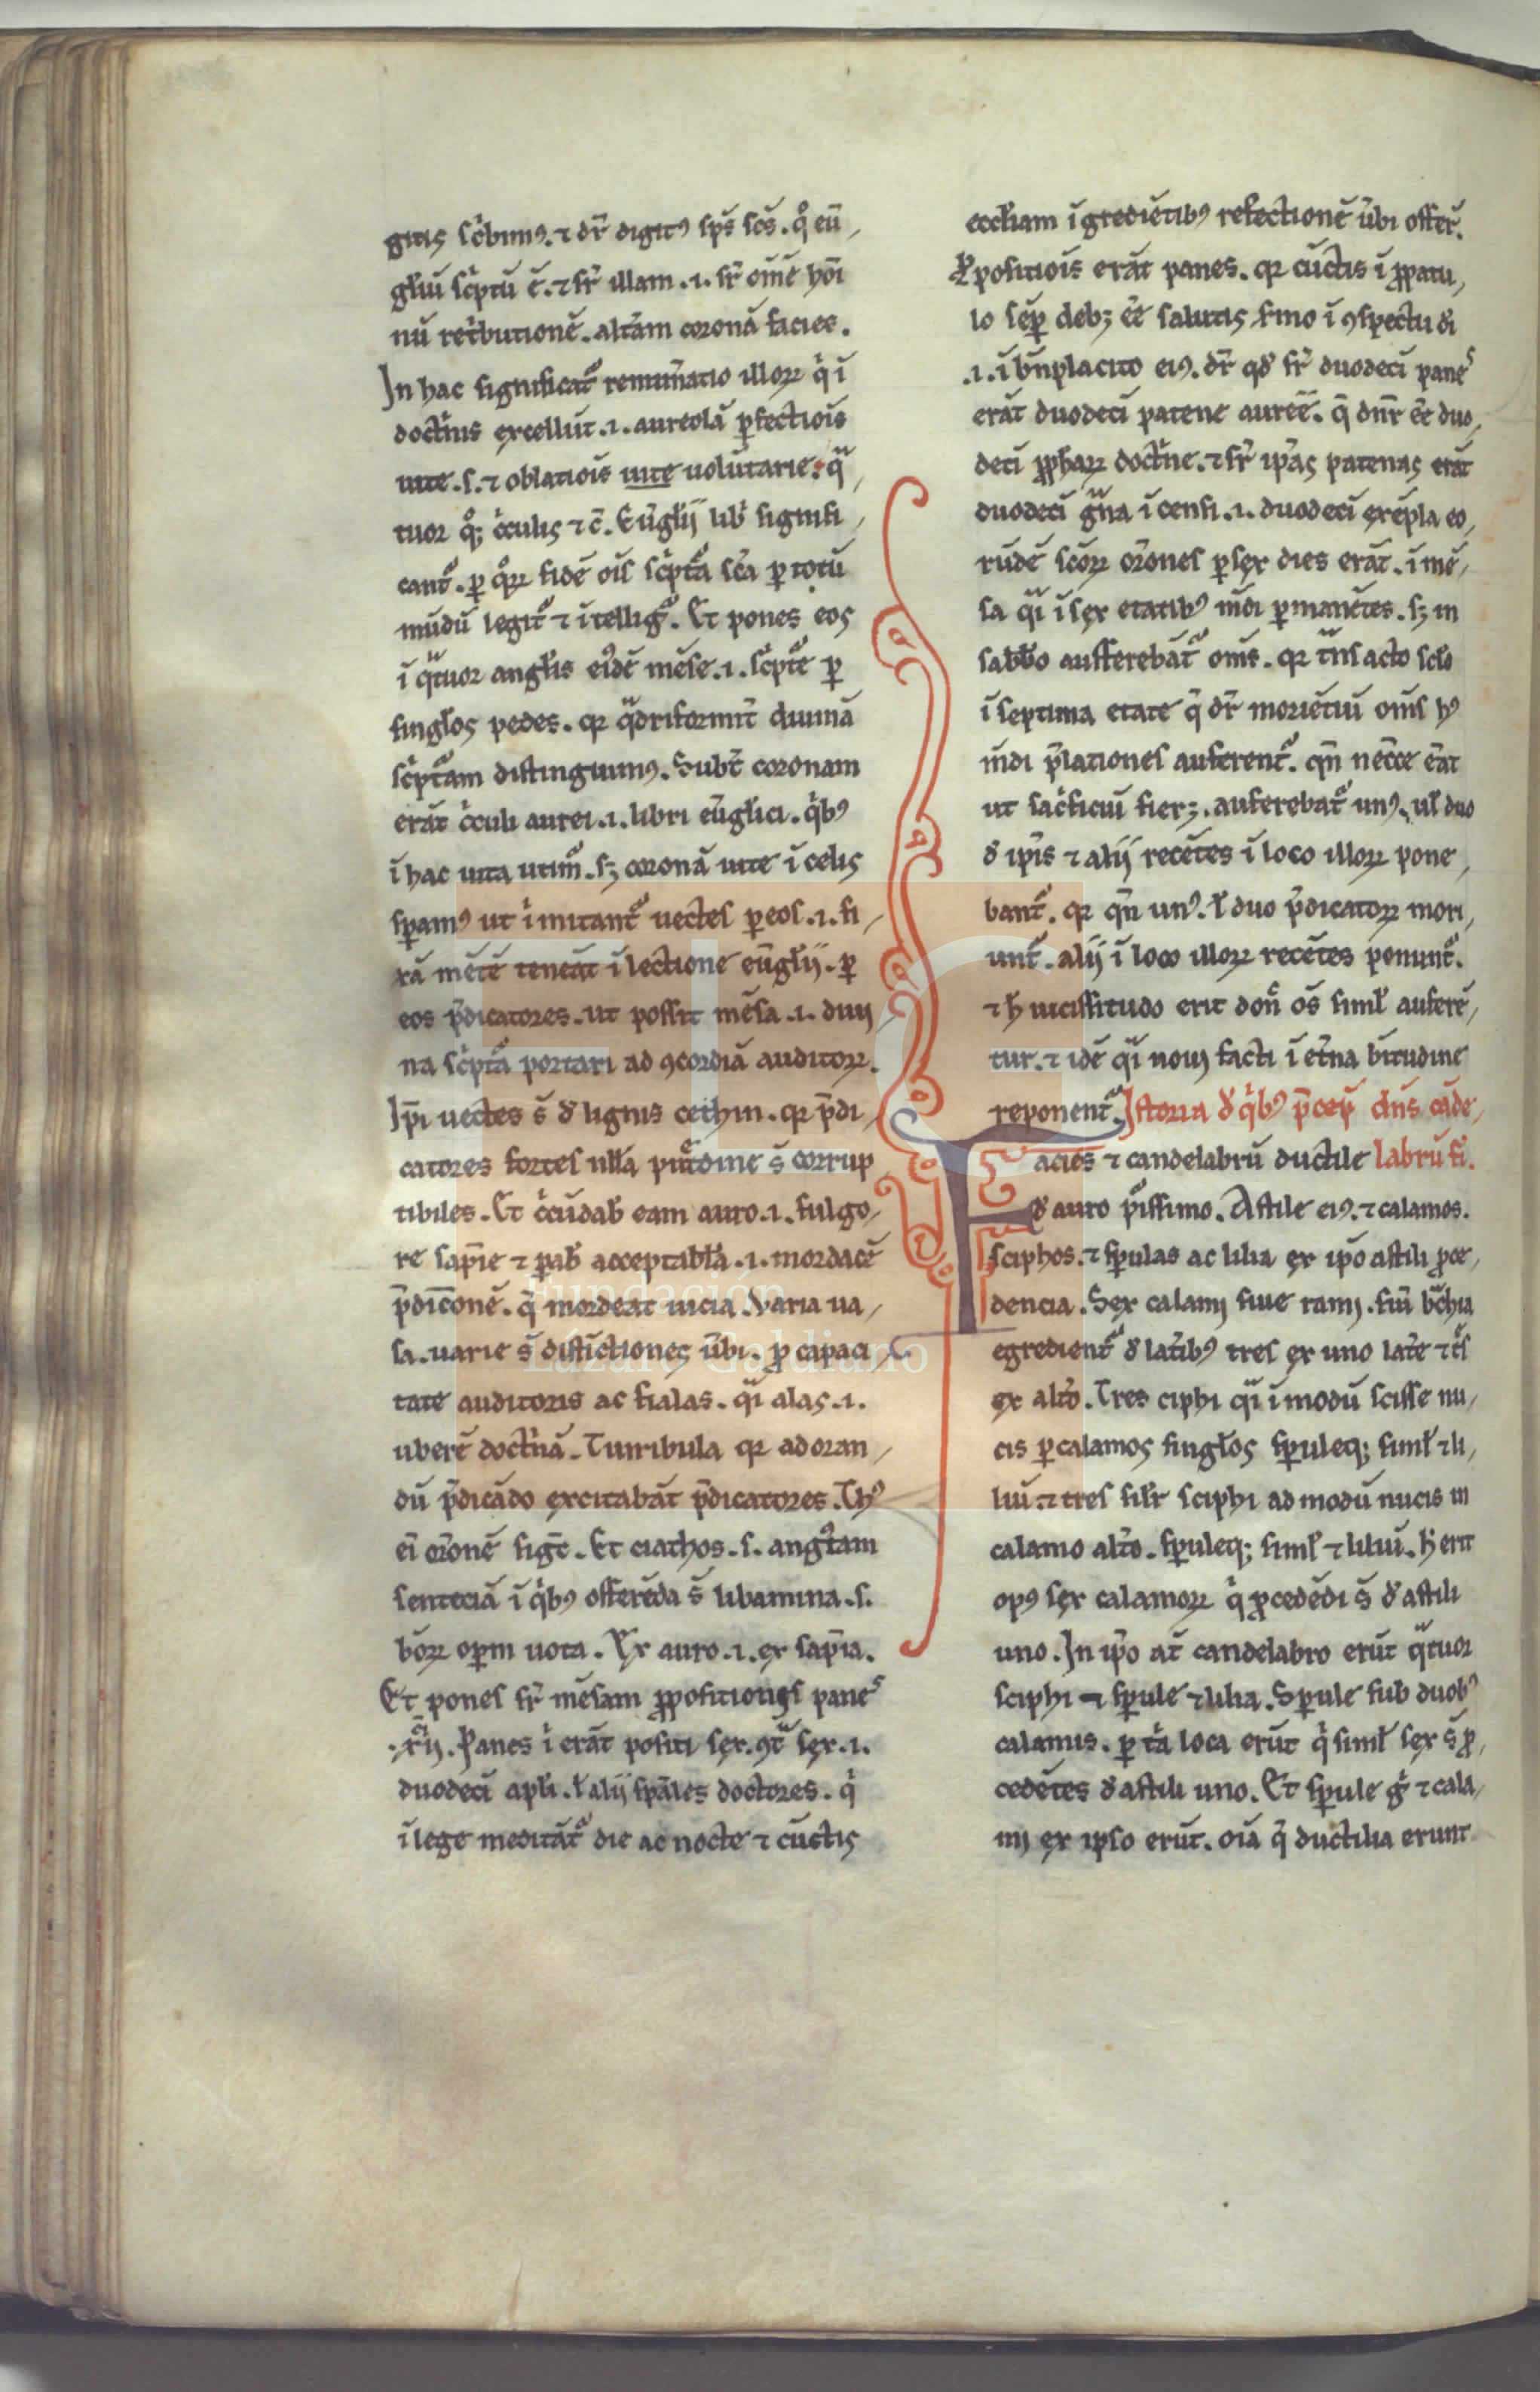 gitis sc̾bimꝰ. ⁊ dr̄ digitꝰ sp̄s sc̄s. qͦ eū
gl̄iū sc̾ptū ē. ⁊ sr̄ illam .i. sr̄ om̄ē hoi
nū ret̾butionē. alt̾am coronā facies.
In hac significat᷑ remun̾atio illoꝝ q̾ ī
doct̾nis excellūt .i. aureolā ꝑfectiōis
uite .s. ⁊ oblatiōis uite uolūtarie. qͣ
tuor qͦꝫ c̾culis ⁊ c̄. Eūgl̄ij lib̾ signifi
cant᷑. ꝑ qͦꝝ fidē oīs sc̾ptͣa sc̄a ꝑ totū
mūdū legit᷑ ⁊ ītellig᷑. Et pones eos
ī qͣtuor angl̄is ei̾dē mēse .i. sc̾ptͤe ꝑ
singl̄os pedes. qꝛ qͣdriformit̾ diuinā
sc̾ptͣam distinguimꝰ. Subt̾ coronam
erāt c̾culi aurei .i. libri eūgl̄ici. q̾bꝰ
ī hac uita utim᷑. sꝫ coronā uite ī celis
sꝑamꝰ ut īmitant᷑ uectes ꝑ eos .i. fi
xā mētē teneāt ī lectione eūgl̄ij. ꝑ
eos p̄dicatores. ut possit mēsa .i. diui
na sc̾ptͣa portari ad ꝯcordiā auditoꝝ.
Ip̄i uectes s̄ đ lignis cethin. qꝛ p̄di
catores fortes nll̄a put̾dine s̄ corrup
tibiles. Et c̾cūdab̾ eam auro .i. fulgo
re sapīe ⁊ ꝑab̾ acceptabl̄a .i. mordacē
p̄dicͨonē. q̄ mordeat uicia. Varia ua
sa. uarie s̄ distīctiones ūbi. ꝓ capaci
tate auditoris ac fialas. qͣi alas .i.
uberē doct̾nā. Turribula qꝛ ad oran
dū p̄dicādo excitabāt p̄dicatores. Thꝰ
ei or̄onē sigt̄. Et ciathos .s. angl̄am
sentēciā ī q̾bꝰ offerēda s̄ libamina .s.
bōꝝ oꝑm uota. Ex auro .i. ex sapīa.
Et pones sr̄ mēsam ꝓpositionis panes
.xij. Panes i erāt positi sex. ꝯtͣ sex .i.
duodecī apl̄i. ł alij sp̄ales doctores. q̾
ī lege meditāt᷑ die ac nocte ⁊ cūctis
eccl̄iam īgrediētibꝰ refectionē ūbi offer̄.
Ꝓpositiōis erāt panes. qꝛ cūctis ī ꝓpatu
lo sēꝑ debꝫ eē salutis sermo ī ꝯspectu dī
.i. ī bn̄placito eiꝰ. dr̄ qđ sr̄ duodecī panes
erāt duodecī patene auree. q̄ dnr̄ eē duo
decī ꝓphaꝝ doct̾ne. ⁊ sr̄ ip̄as patenas erāt
duodecī gͣna īcensi .i. duodecī exēpla eo
rūdē scōꝝ or̄ones ꝑ sex dies erāt. ī mē
sa qͣi ī sex etatibꝰ mdi ꝑmanētes. sꝫ in
sabb̄o aufferebāt᷑ om̄s. qꝛ tͣnsacto sclo
ī septima etate q̄ dr̄ moriētiū om̄s hꝰ
mdi p̄lationes auferent᷑. qn̄ necc̄e erat
ut sac̾ficiū fierꝫ. auferebat᷑ unꝰ. ul̄ duo
đ ip̄is ⁊ alij recētes ī loco illoꝝ pone
bant᷑. qꝛ qn̄ unꝰ. ł duo p̄dicatoꝝ mori
unt᷑. alij ī loco illoꝝ recētes ponunt᷑.
⁊ h̄ uicissitudo erit don̄ os̄ siml̄ auferē
tur. ⁊ idē qͣi noui facti ī et̾na bt̄itudine
reponent᷑. Istoria đ q̾bꝰ p̄cep̄ dn̄s cāde
Facies ⁊ candelabrū ductile labrū fi.
đ auro p̾issimo. Astile eiꝰ. ⁊ calamos.
sciphos. ⁊ sꝑulas ac lilia ex ip̄o astili ꝓce
dencia. Sex calami siue rami. siū bͣchia
egredient᷑ đ lat̾ibꝰ tres ex uno late ⁊ t̾s
ex alt̾o. Tres ciphi qͣi ī modū scisse nu
cis ꝑ calamos singl̄os sꝑuleqꝫ siml̄ ⁊ li
liū. ⁊ tres sil̄r sciphi ad modū nucis in
calamo alt̾o. sꝑuleqꝫ siml̄ ⁊ liliū. h̄ erit
opꝰ sex calamoꝝ q̾ ꝓcedēdi s̄ đ astili
uno. In ip̄o at̄ candelabro erūt qͣtuor
sciphi ⁊ sꝑule ⁊ lilia. Sꝑule sub duobꝰ
calamis. ꝑ t̾a loca erūt q̾ siml̄ sex s̄ ꝓ
cedētes đ astili uno. Et sꝑule g̾ ⁊ cala
mi ex ipso erūt. oīa q̄ ductilia erunt
Fundación
Lázaro Galdiano